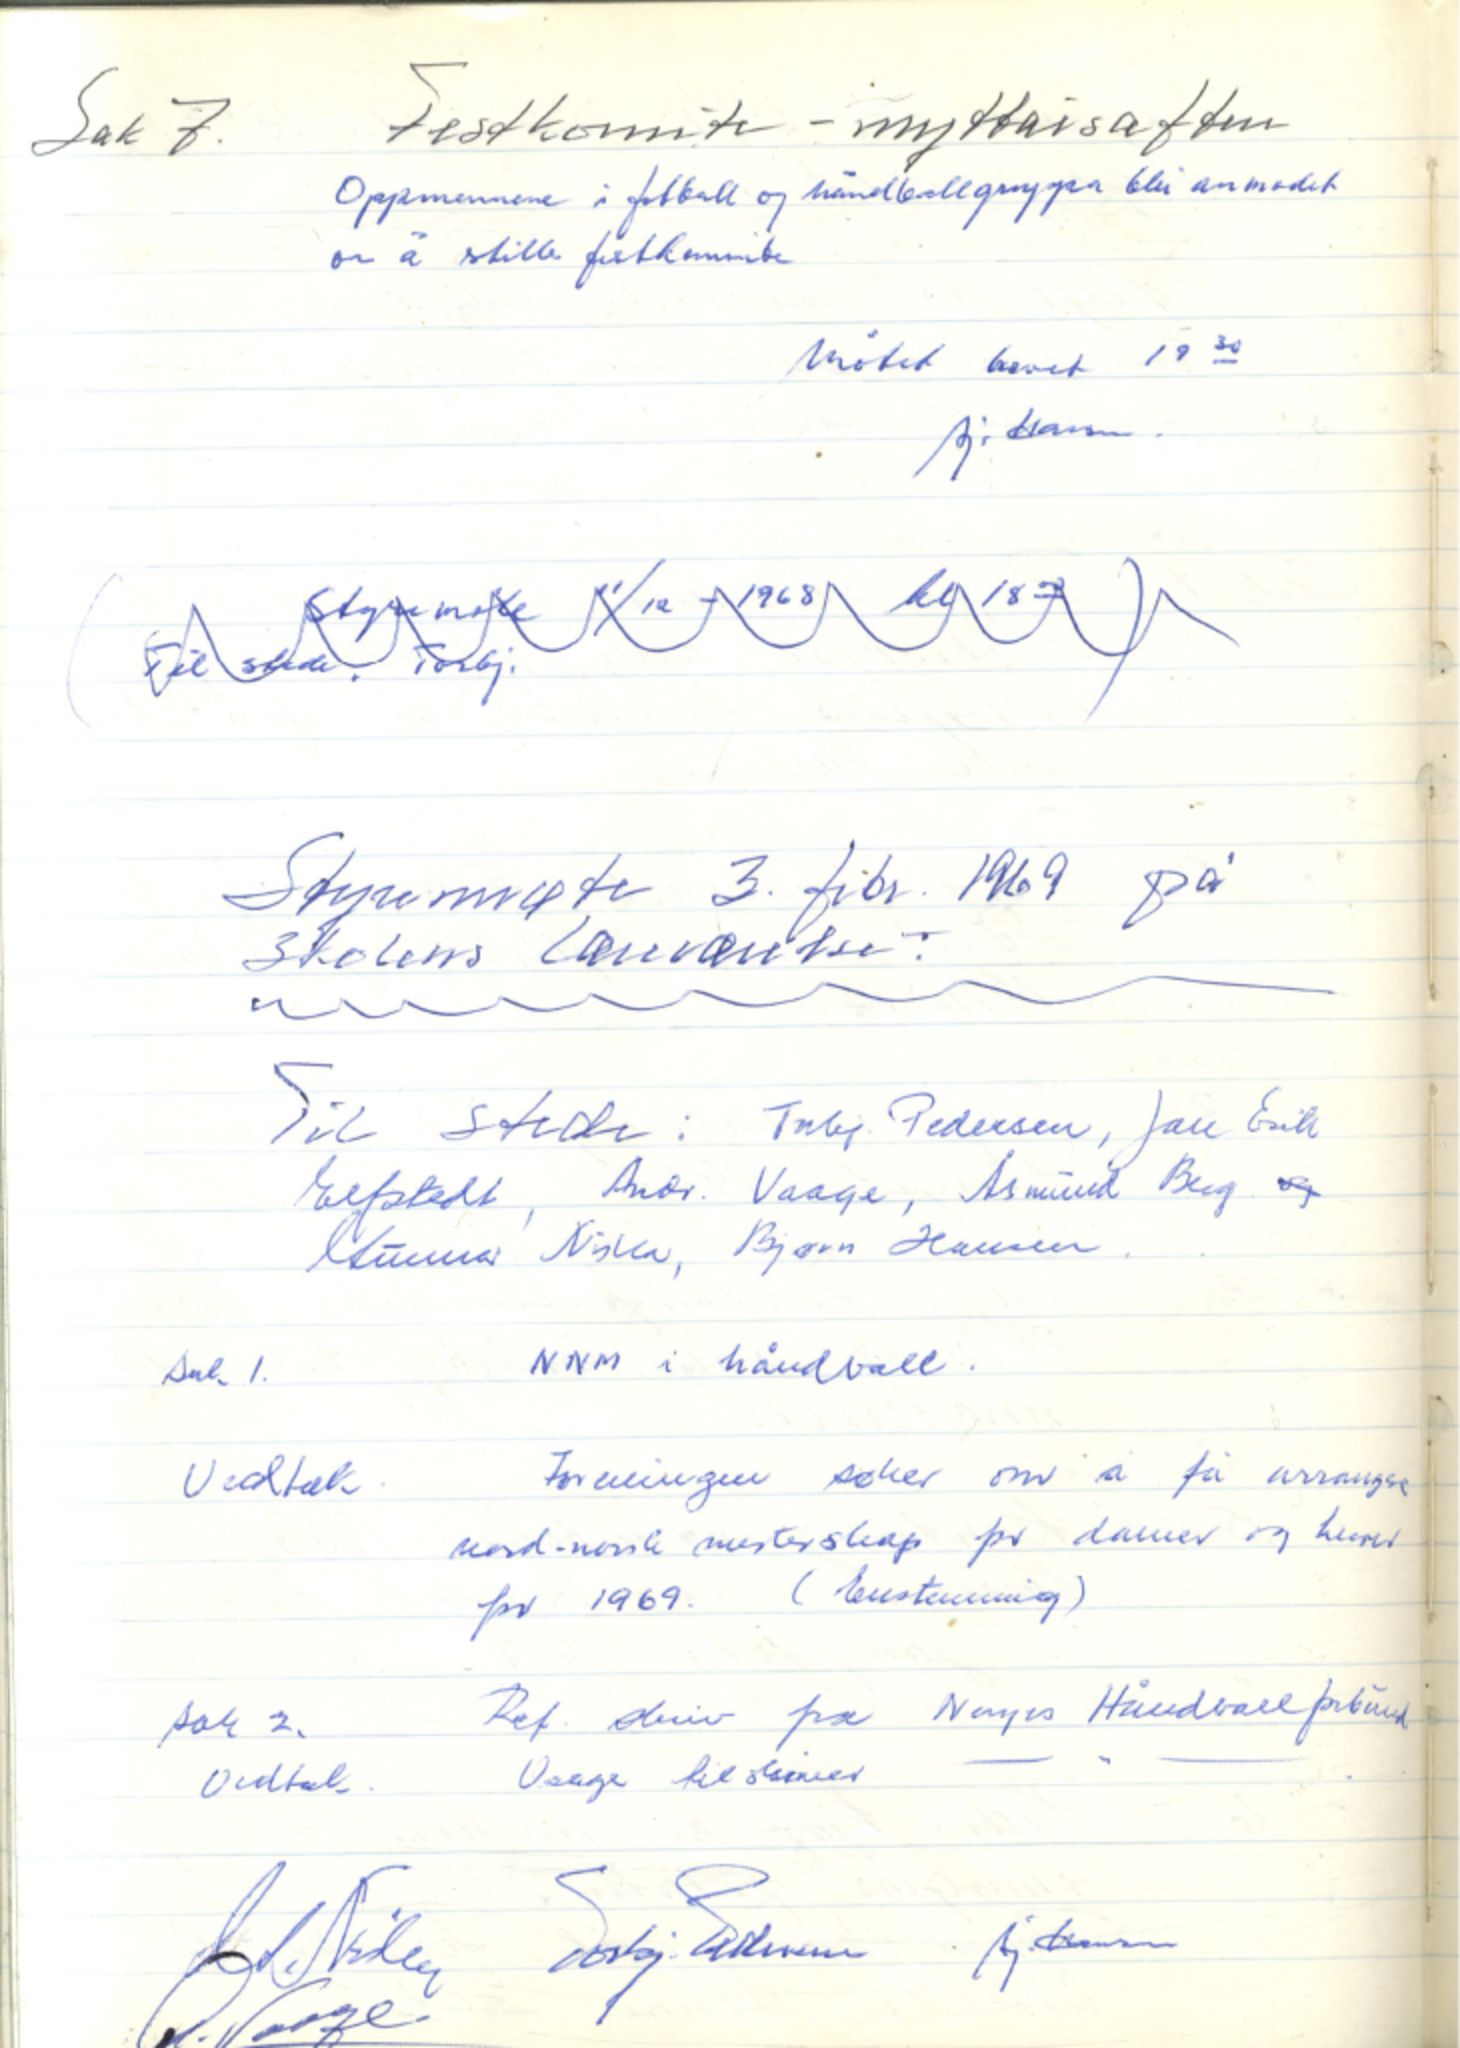 Sak 7. Festkomite - nyttårsaften
Oppmennene i fotball og håndballgruppa blir anmodet
om å stille festkommite
Møtet hevet 19 30
Bj. Hansen.
Styremøte 11/12 - 1968 kl 18
Til stede. Torbj.
Styremøte 3. febr. 1969 på
Skolens lærerværelse:
Til stede: Torbj. Pedersen, Jan Erik
Elfstedt, Andr. Vaage, Åsmund Berg og
Gunnar Niska, Bjørn Hansen.
Sak 1. NNM i håndball.
Vedtak. Foreningen søker om å få arrangere
nord-norsk mesterskap for damer og herrer
for 1969. (Enstemmig)
Sak 2. Ref. skriv fra Norges Håndballforbund
Vedtak. Vaage tilskriver — " —
Torbj. Pedersen Bj. Hansen
A. Vaage